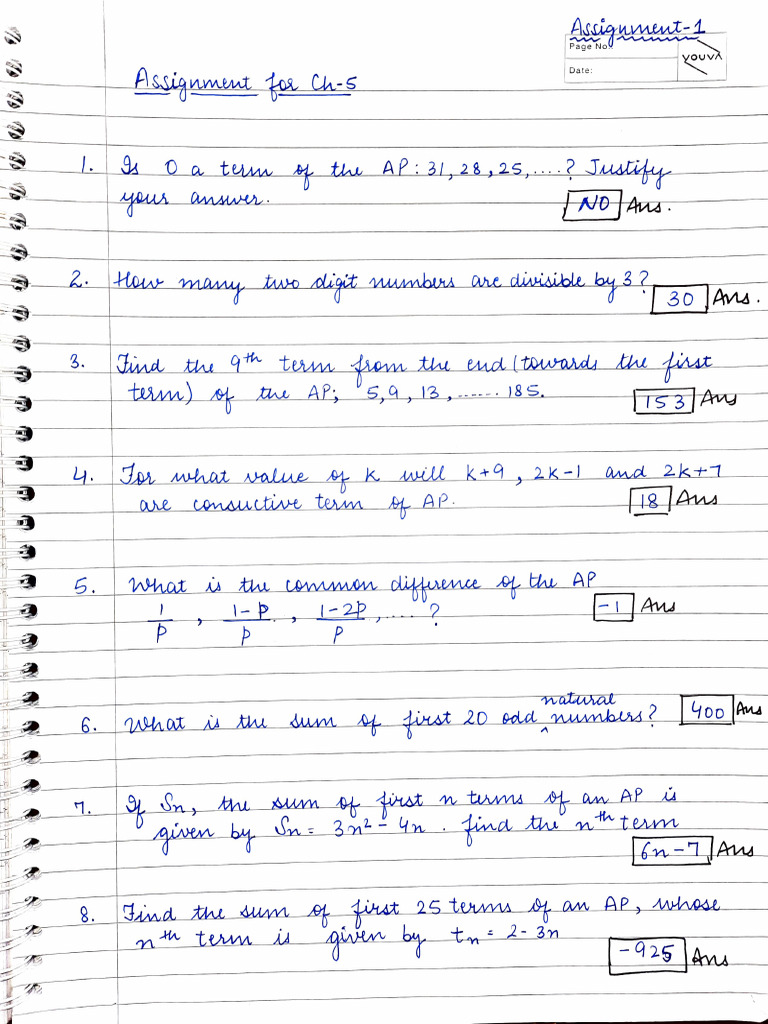 Assignment-1
Page No.
Date:
YOUVA
Assignment for Ch-5
1. Is 0 a term of the AP: 31, 28, 25, ....? Justify
your answer. NO Ans.
2. How many two digit numbers are divisible by 3? 30 Ans.
3. Find the 9th term from the end (towards the first
term) of the AP; 5, 9, 13, ...... 185. 153 Ans
4. For what value of K will K+9, 2K-1 and 2K+7
are consuctive term of AP. 18 Ans
5. What is the common difference of the AP
1/p, 1-p/p, 1-2p/p, ....? -1 Ans
natural
6. What is the sum of first 20 odd ^ numbers? 400 Ans
7. If Sn, the sum of first n terms of an AP is
given by Sn = 3n² - 4n. find the nth term
6n-7 Ans
8. Find the sum of first 25 terms of an AP, whose
nth term is given by tn = 2-3n
-925 Ans